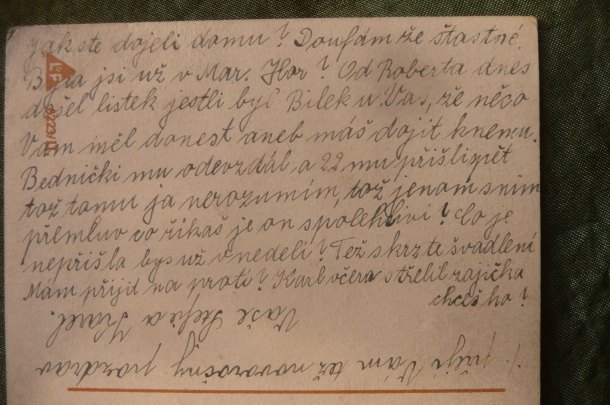 Jak ste dojeli domu? Doufám že štastně.
Byla jsi už v Mar. Hor? Od Roberta dnes
došel listek jestli byl Bilek u Vas, že něco
Vam měl donest aneb máš dojit k nemu.
Bednički mu odevzdál a 22 mu přišli zpět
tož tomu ja nerozumim, tož jenom s nim
přemluv co řikáš je on spolehlivi! Co je
nepřišla bys už v neděli? Též skrz te švadleni
Mám přijit na proti? Karl včera střelil zajička
chceš ho?
Vaše a Karel.
přeji Vám též novoročný pozdrav